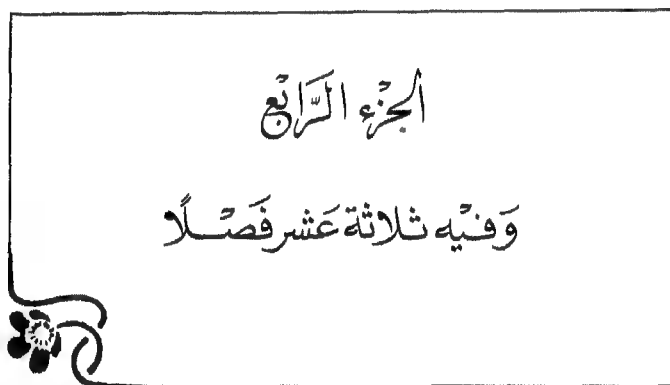 الجزْء الرَّابْع
وَفيْه ثلاثة عَشر فَصْلًا